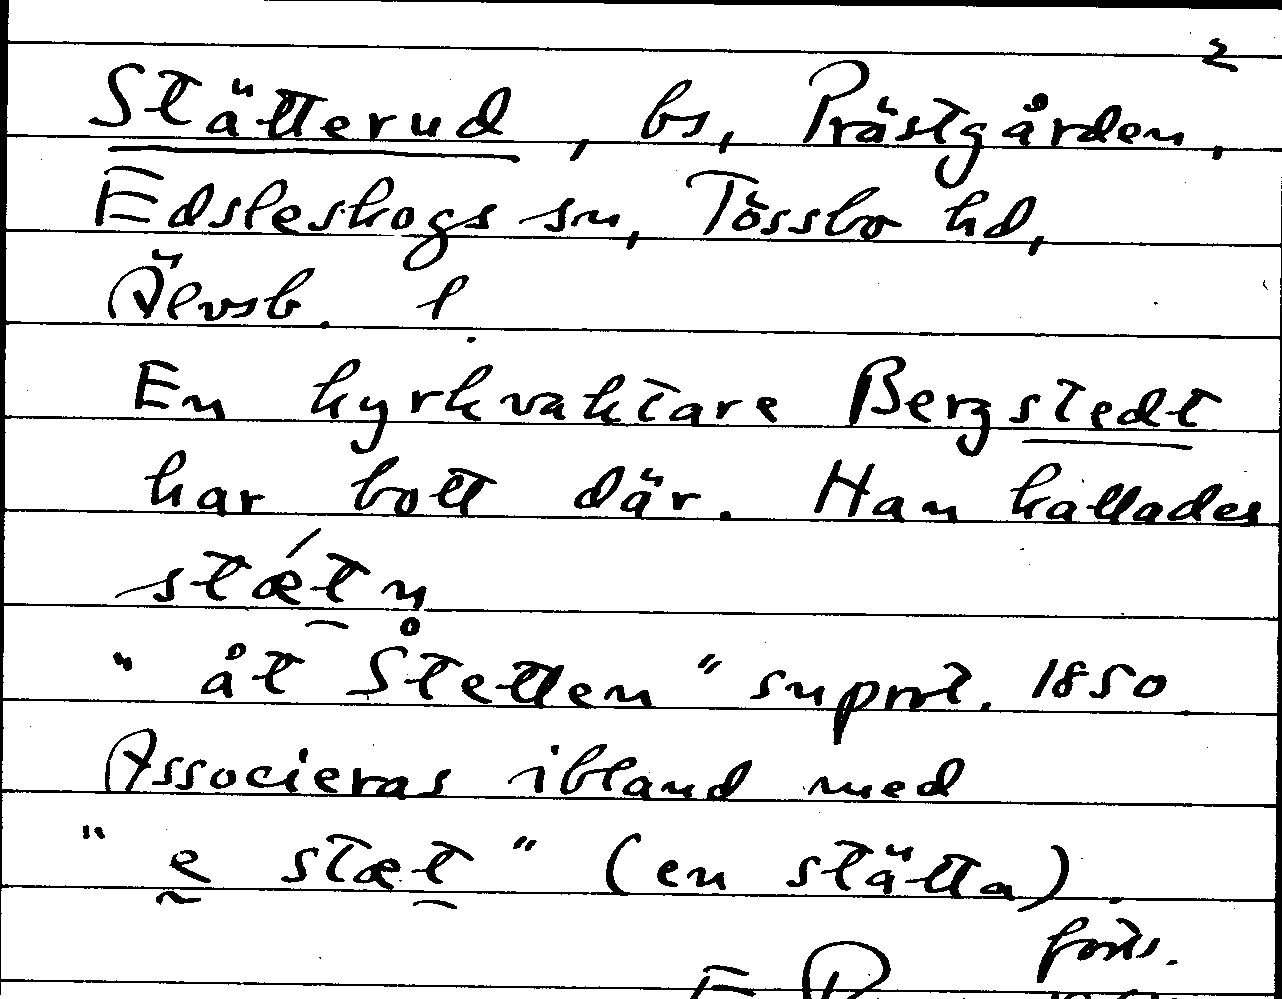 2
Stätterud, bs, Prästgården,
Edsleskogs sn, Tössbo hd,
Älvsb. l.
En kyrkvaktare Bergstedt
har bott där. Han kallades
stǽt̯n̥
"åt Stetten" snprot. 1850.
Associeras ibland med
"ḛ stæt̯" (en stätta).
forts.